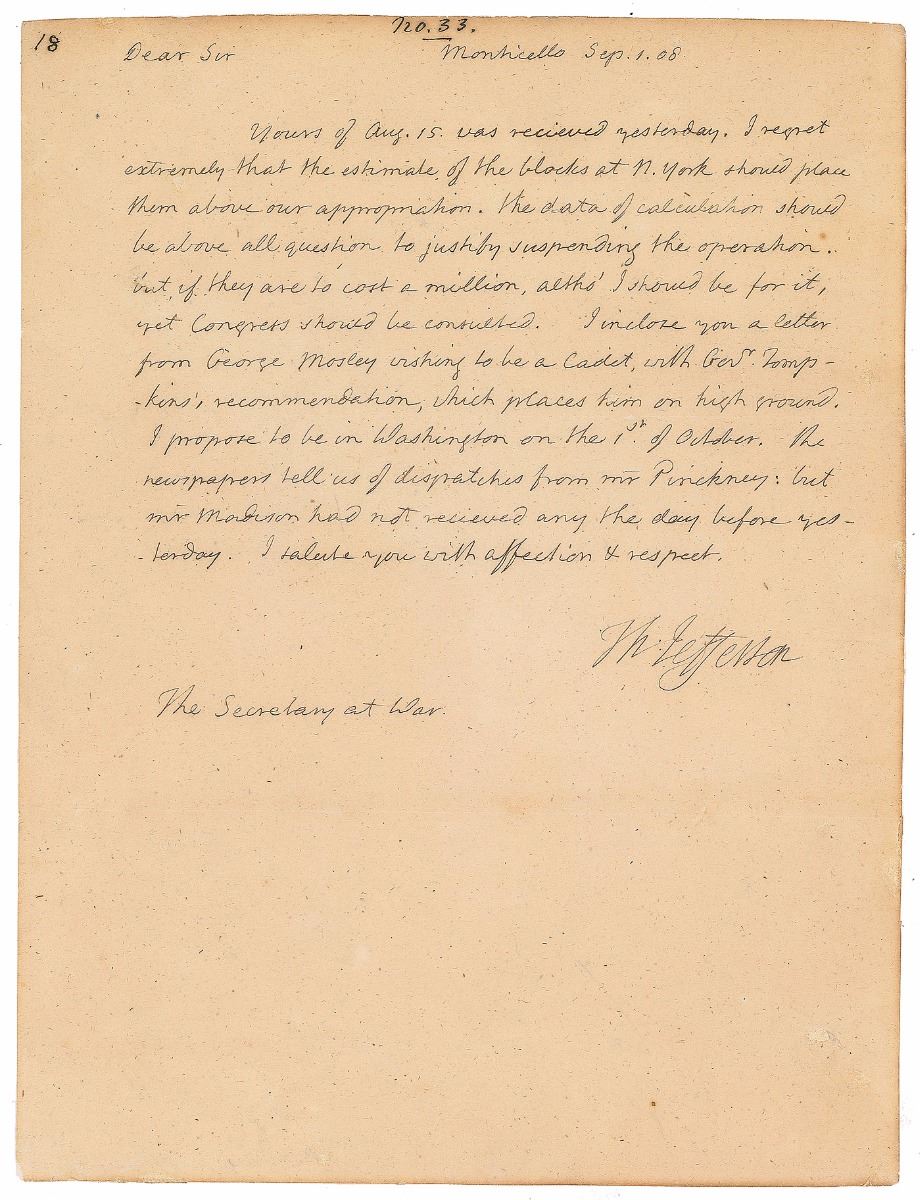 18
No. 33.
Dear Sir Monticello Sep. 1. 08
Yours of Aug. 15. was recieved yesterday. I regret
extremely that the estimate of the blocks at N. York should place
them above our appropriation. the data of calculation should
be above all question to justify suspending the operation.
but if they are to cost a million, altho' I should be for it,
yet Congress should be consulted. I inclose you a letter
from George Mosley wishing to be a Cadet, with Govr. Tomp-
-kins's recommendation, which places him on high ground.
I propose to be in Washington on the 1st. of October. the
newspapers tell us of dispatches from mr Pinckney: but
mr Madison had not recieved any the day before yes-
-terday. I salute you with affection & respect.
Th: Jefferson
The Secretary at War.